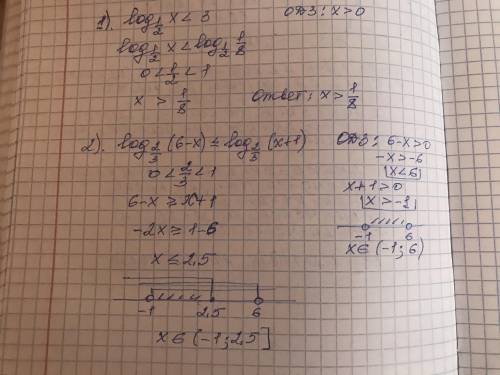 1). log_{1/2} x < 3 ОДЗ: x>0
log_{1/2} x < log_{1/2} 1/8
0 < 1/2 < 1
x > 1/8 Ответ: x > 1/8
2). log_{2/3} (6-x) ≤ log_{2/3} (x+1) ОДЗ: 6-x>0
0 < 2/3 < 1 -x>-6
x<6
6-x ≥ x+1 x+1>0
x>-1
-2x ≥ 1-6
-1 6
x ≤ 2,5 x∈(-1;6)
-1 2,5 6
x∈(-1;2,5]